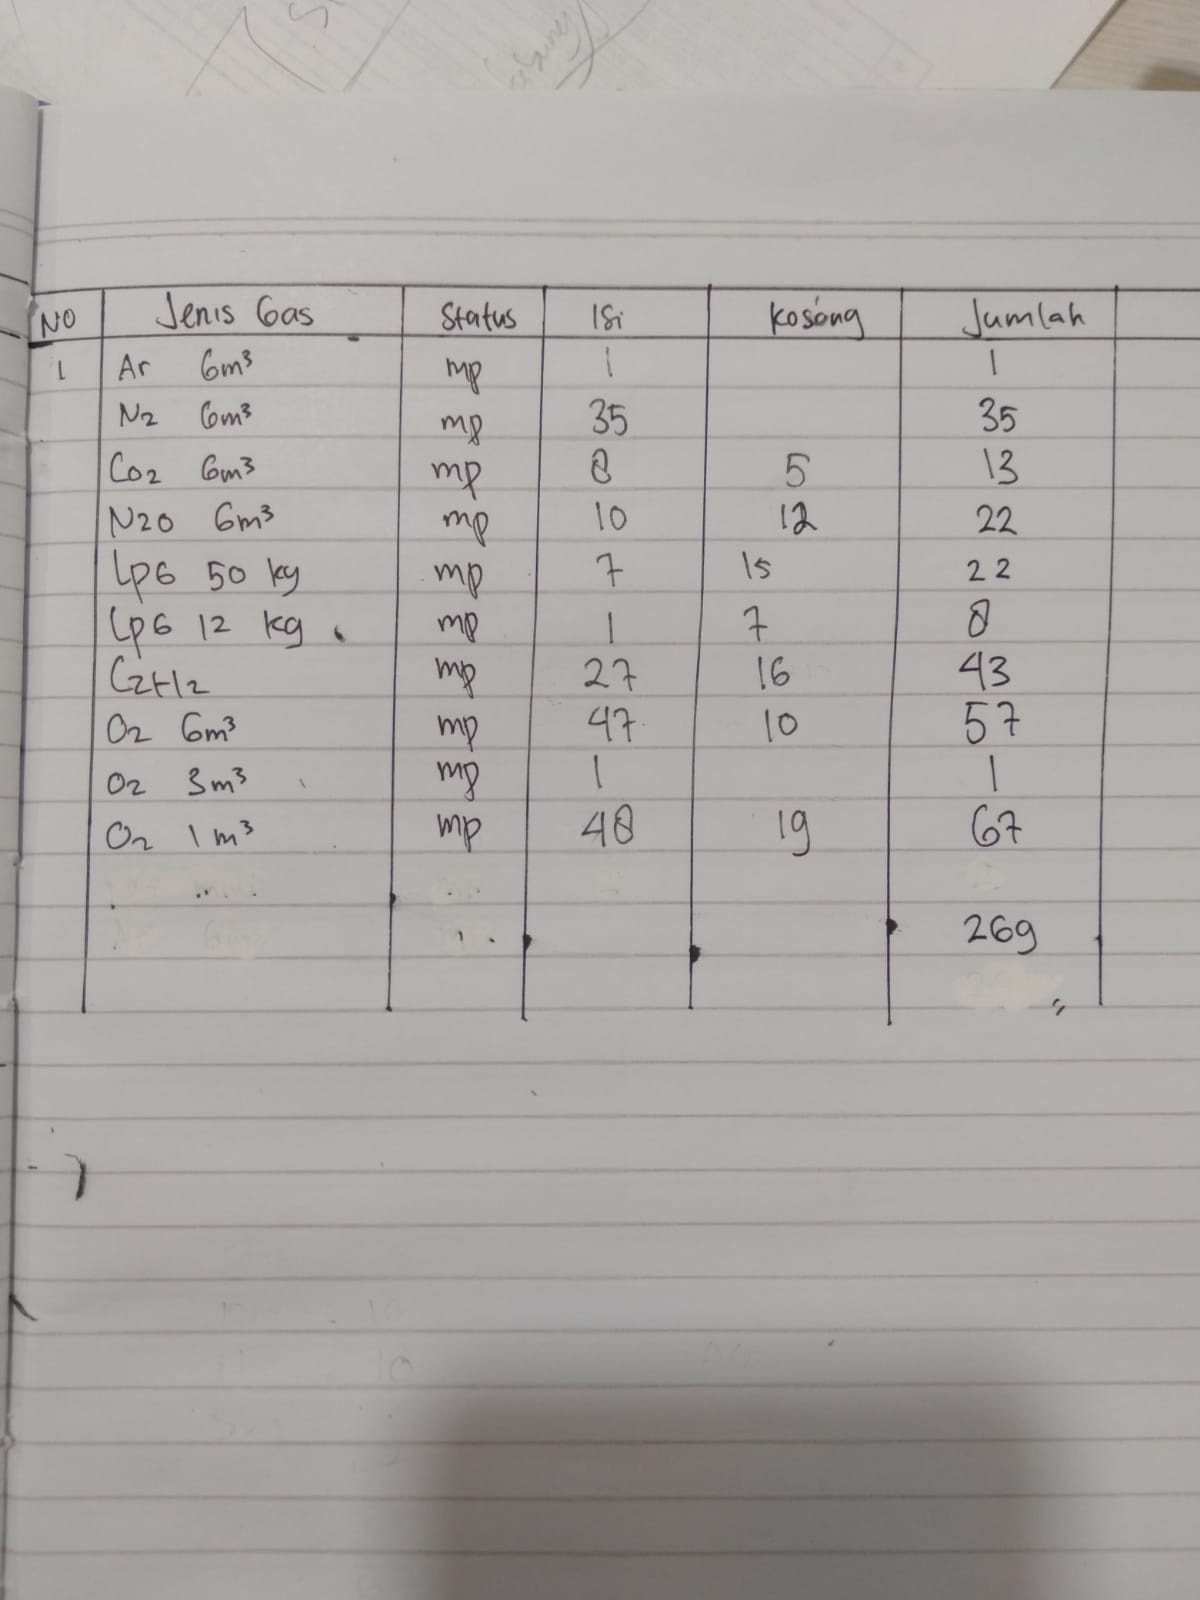 NO Jenis Gas Status Isi Kosong Jumlah
1 Ar 6m³ mp 1 1
N2 6m³ mp 35 35
Co2 6m³ mp 8 5 13
N2O 6m³ mp 10 12 22
LpG 50 kg mp 7 15 22
LpG 12 kg mp 1 7 8
C2H2 mp 27 16 43
O2 6m³ mp 47 10 57
O2 3m³ mp 1 1
O2 1 m³ mp 48 19 67
269